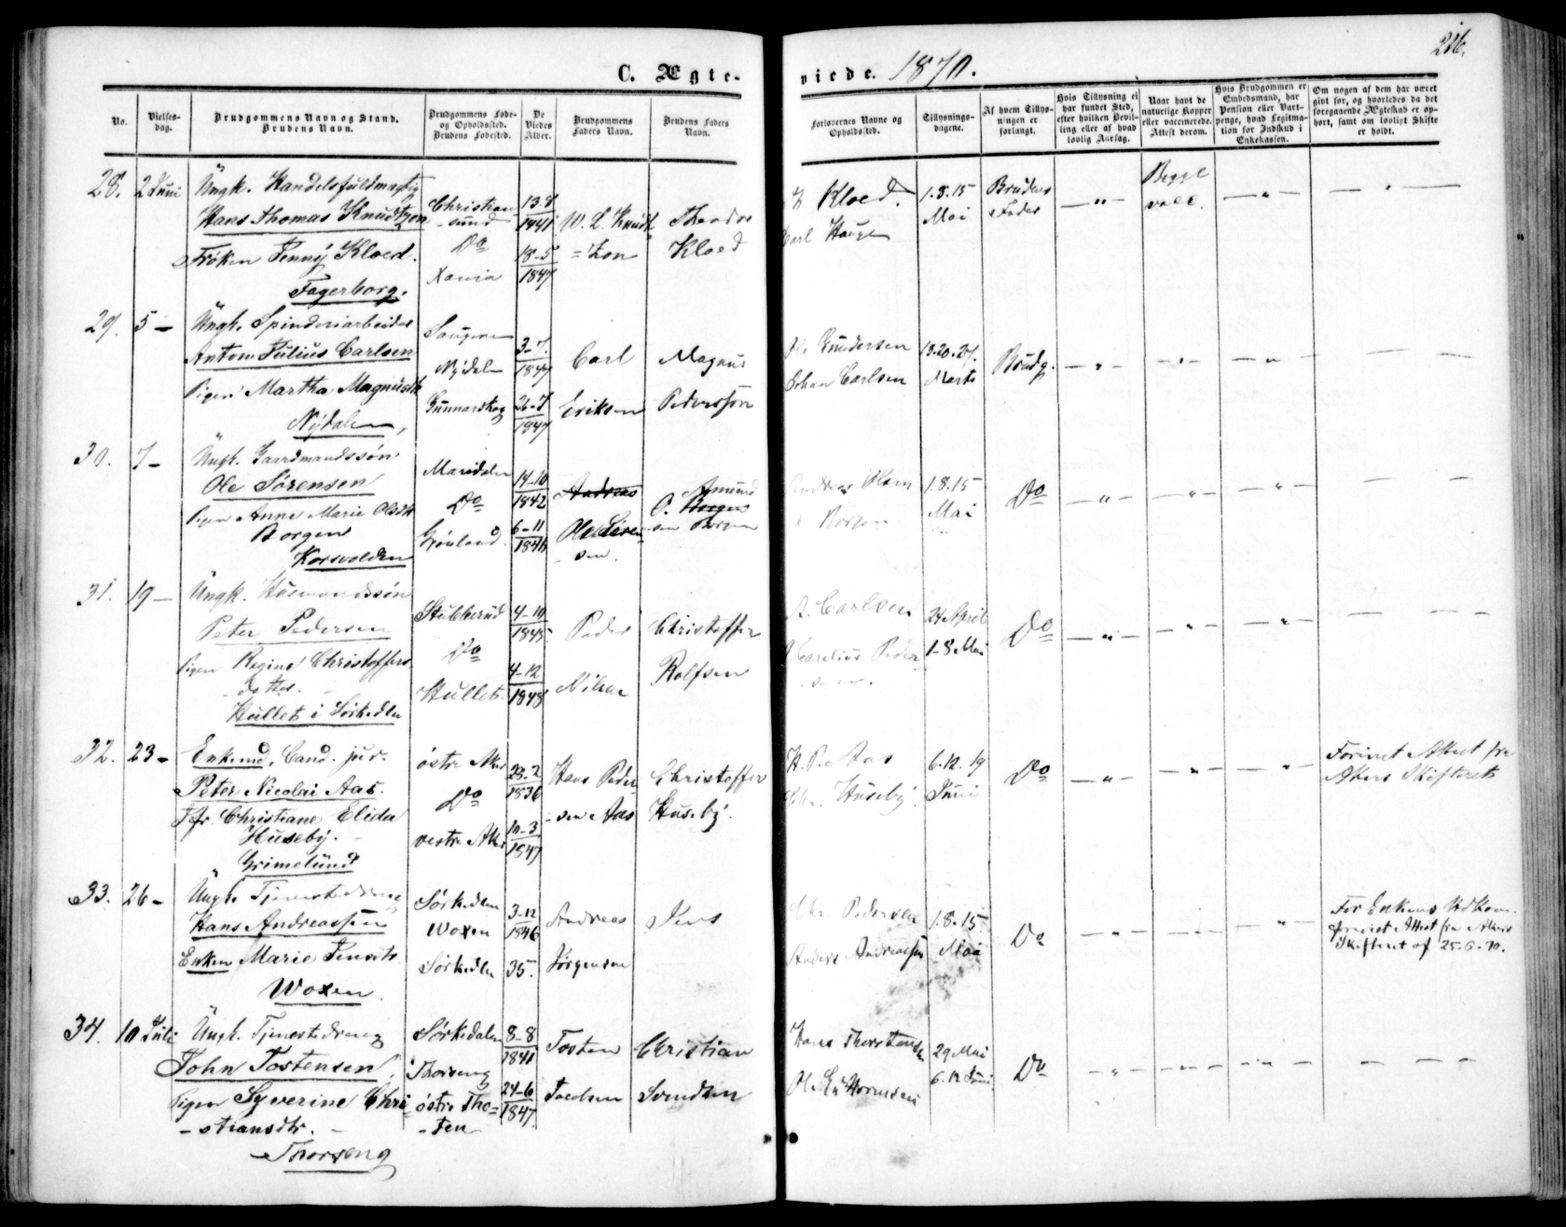 216.
C. Ægte- viede. 1870.
No.
Vielses-
dag.
Brudgommens Navn og Stand.
Brudens Navn.
Brudgommens Føde-
og Opholdssted.
Brudens Fødested.
De
Viedes
Alder.
Brudgommens
Faders Navn.
Brudens Faders
Navn.
Forlovernes Navne og
Opholdssted.
Tillysnings-
dagene.
Af hvem Tillys-
ningen er
forlangt.
Hvis Tillysning ei
har fundet Sted,
efter hvilken Bevil-
ling eller af hvad
lovlig Aarsag.
Naar havt de
naturlige Kopper
eller vaccinerede.
Attest derom.
Hvis Brudgommen er
Embedsmand, har
Pension eller Vart-
penge, hvad Legitima-
tion for Indskud i
Enkekassen.
Om nogen af dem har været
gift før, og hvorledes da det
foregaaende Ægteskab er op-
hørt, samt om lovligt Skifte
er holdt.
28. 2 Juni Ungk. Handelsfuldmægtig
Hans Thomas Knudtzon
Frøken Fenny Kloed.
Fagerborg.
Christian
-sund
Do
Xania
13-8
1841
18-5
1847
W. L. Knudt
=zon
Theodor
Kloed
Kloed.
Carl Hauge
1.8.15
Mai
Brudens
Fader
— " —
Begge
vacc.
— " —
29. 5 — Ungk. Spinderiarbeider
Anton Julius Carlsen
Pigen Martha Magnusdtr
Nydalen,
Nydalen
3-7
1847
26-7
1847
Carl
Eriksen
Magnus
Pederssøn
Gundersen
Johan Carlsen
13.20.27.
Marts
Brudg.
— " —
30. 7 — Ungk. Gaardmandssøn
Ole Sørensen
Pigen Anne Marie Olsdtr
Borgen
Korsvolden
Maridalen
Do
Grønland
14-10
1842
6-11
1846
Andreas
Ole Søren
-sen.
Amund
O. Borgen
-sen Borgen
Andreas Olsen
Borgen
1.8.15
Mai
Do
— " —
31. 19 — Ungk. Husmandssøn
Peter Pedersen
Pigen Regine Christoffers
datter.
Hullet i Sørkedlen
Stubberud
Do
Hullet
4-10
1845
4-12
1848
Peder
Nilsen
Christoffer
Rolfsen
A. Carlsen
Carelius Peder
-sen.
24 April
1-8 Mai
Do
— " —
32. 23 — Enkemd, Cand. jur.
Peter Nicolai Aas.
Jfr. Christiane Elida
Huseby.
Grimelund
østre Aker
Do
vestre Aker
23-2
1836
10-3
1847
Hans Peder
-sen Aas
Christoffer
Huseby.
H. P. Aas
Chr. Huseby
6.12.19
Juni
Do
— " —
Forevist Attest fra
Akers Skifteret
33. 26 — Ungk. Tjenestedreng
Hans Andreassen
Enken Marie Jensdtr
Woxen.
Sørkedlen
Woxen
Sørkedlen
3-12
1846
35.
Andreas
Jørgensen
Jens
Chr. Pedersen
Anders Andreassen
1.8.15.
Mai
Do
— " —
For Enkens Vedkom.
forevist Attest fra Akers
Skifteret af 25-6-70.
34. 10 Juli Ungk. Tjenestedreng
John Tostensen,
Pigen Syverine Chri
-stiansdtr.
Thorseng
Sørkedalen
Thorseng
østre Tho=
-ten
8-8
1841
24-6
1847.
Tosten
Christian
Svendsen
Hans Thorstensen
29 Mai
6.12 Juni
Do
— " —